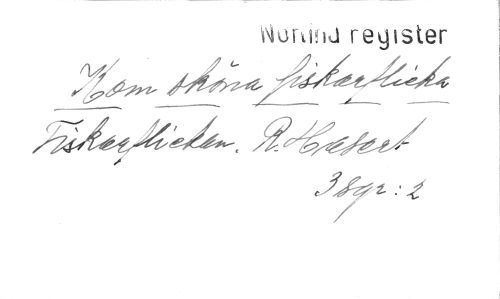 Norlind register
Kom sköna fiskarflicka
Fiskarflickan. R. Hasert
3 sgr: 2